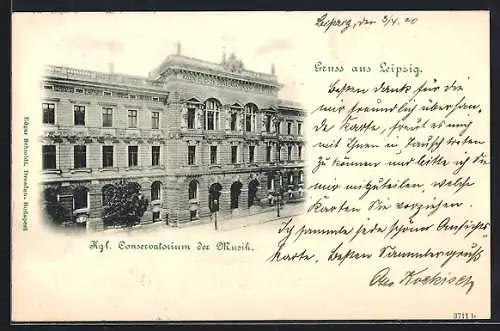 Leipzig, den 3/4. 00
Gruss aus Leipzig.
Besten Dank für die
mir freundlich übersan-
de Karte, freut es mich
mit Ihnen in Tausch treten
zu können und bitte ich Sie
mir mitzuteilen, welche
Karten Sie vorziehen.
Ich sammle jede schöne Ansichts-
karte. Besten Sammlergruß
Kgl. Conservatorium der Musik.
Edgar Schmidt, Dresden. Budapest
3711 b